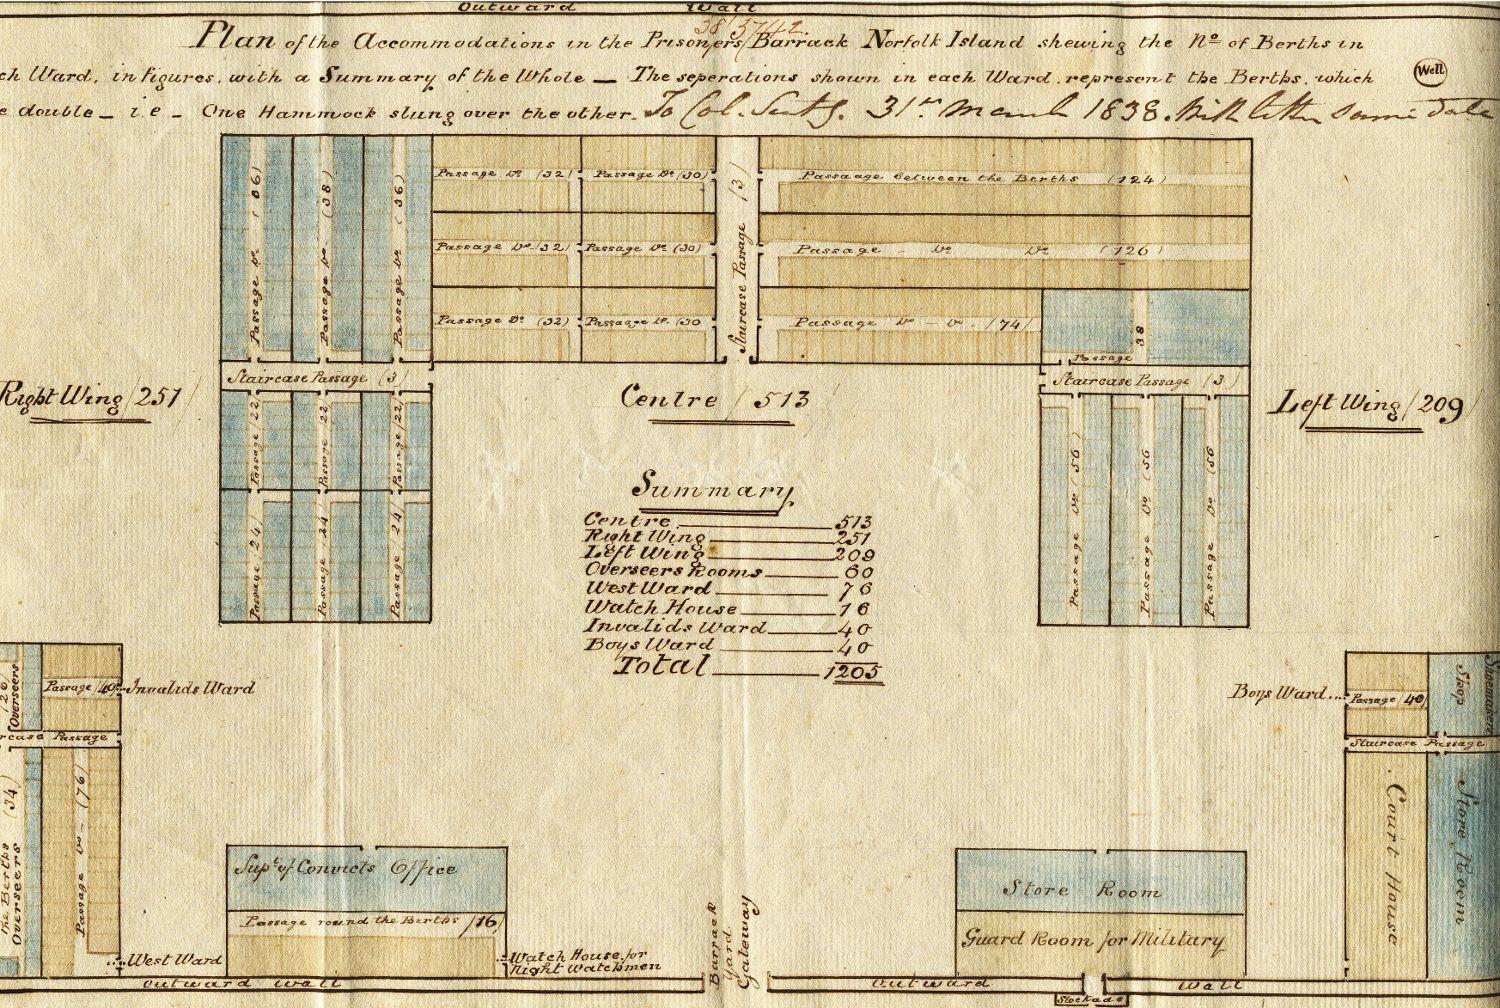 Outward Wall
38/3742.
Plan of the Accommodations in the Prisoners Barrack Norfolk Island shewing the No of Berths in
ch Ward, in figures, with a Summary of the Whole — The seperations shown in each Ward, represent the Berths, which
e double — i.e — One Hammock slung over the other.
To Col. 31st March 1838. With letter same date
Well
Passage Do (86)
Passage Do (38)
Passage Do (36)
Passage Do (32)
Passage Do (30)
Staircase Passage (3)
Passaage between the Berths (124)
Passage Do (32)
Passage Do (30)
Passage - Do Do (126)
Passage Do (32)
Passaage Do (30
Passage Do - Do. (74)
38
Passage
Staircase Passage (3)
Staircase Passage (3)
Right Wing / 251
Centre / 513
Left Wing / 209
Passage / 22
Passage / 22
Passage / 22
Passage / 24 /
Passage / 24 /
Passage / 24 /
Passage Do (56)
Passage Do (56
Passage Do (56
Summary
Centre 513
Right Wing 251
Left Wing 209
Overseers Rooms 60
West Ward 76
Watch House 16
Invalids Ward 40
Boys Ward 40
Total 1205
(26)
Overseers
Passage / 40
Invalids Ward
rcase Passage
the Berths (34)
Overseers
Passage Do - (76)
West Ward
Boys Ward
Passage / 40
Shoemakers
Shop
Staircase Passage
Court House
Store Room
Supt of Convicts Office
Passage round the Berths / 16
Watch House for
Night Watchmen
Barrack
Yard
Gateway
Store Room
Guard Room for Military
Outward Wall
Outward Wall
Stockade